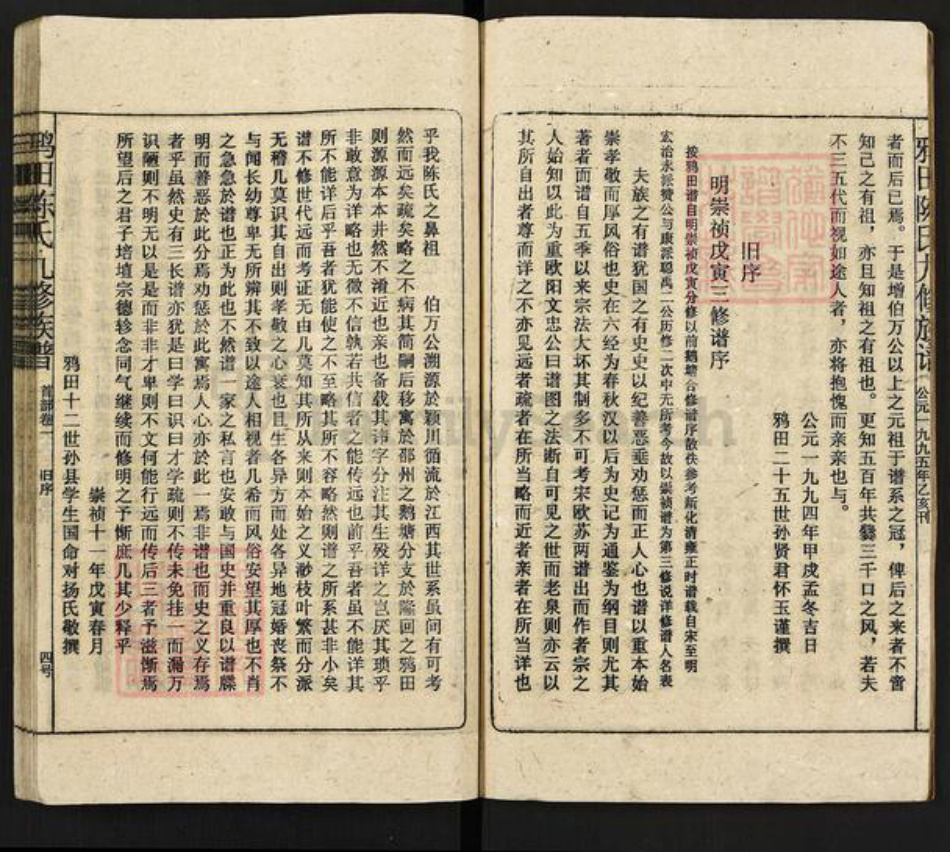 鸦田陈氏九修族谱 公元一九九五年乙亥刊
者而后已焉。于是增伯万公以上之元祖于谱系之冠，俾后之来者不啻
知己之有祖，亦且知祖之有祖也。更知五百年共爨三千口之风，若夫
不三五代而视如途人者，亦将抱愧而亲亲也与。
公元一九九四年甲戌孟冬吉日
鸦田二十五世孙贤君怀玉谨撰
旧序
明崇祯戊寅三修谱序
按鸦田谱自明崇祯戊寅分修以前鹅塘合修谱序散佚参考新化清雍正时谱载自宋至明
宏治永派赞公与康派聪禹二公历修二次中无所考今故以崇祯谱为第三修说详修谱人名表
夫族之有谱犹国之有史史以纪善恶垂劝惩而正人心也谱以重本始
崇孝敬而厚风俗也史在六经为春秋汉以后为史记为通鉴为纲目则尤其
著者而谱自五季以来宗法大坏其制多不可考宋欧苏两谱出而作者宗之
人始知以此为重欧阳文忠公曰谱图之法断自可见之世而老泉则亦云以
其所自出者尊而详之不亦见远者疏者在所当略而近者亲者在所当详也
乎我陈氏之鼻祖 伯万公溯源於颖川循流於江西其世系虽间有可考
然而远矣疏矣略之不病其简嗣后移寓於邵州之鹅塘分支於隆回之鸦田
则源源本本井然不淆近也亲也备载其讳字分注其生殁详之岂厌其琐乎
非敢意为详略也无微不信孰若共信者之能传远也前乎吾者虽不能详其
所不能详后乎吾者犹能使之不至略其所不容略然则谱之所系甚非小矣
谱不修世代远而考证无由几莫知其所从来则本始之义渺枝叶繁而分派
无稽几莫识其自出则孝敬之心衰也且生各异方而处各异地冠婚丧祭不
与闻长幼尊卑无所辨其不致以途人相视者几希而风俗安望其厚也不肖
之急急於谱也正为此也不然谱一家之私言也安敢与国史并重良以谱牒
明而善恶於此分焉劝惩於此寓焉人心亦於此一焉非谱也而史之义存焉
者乎虽然史有三长谱亦犹是曰学曰识曰才学疏则不传未免挂一而漏万
识陋则不明无以是是而非非才卑则不文何能行远而传后三者予滋惭焉
所望后之君子培埴宗德轸念同气继续而修明之予惭庶几其少释乎
崇祯十一年戊寅春月
鸦田十二世孙县学生国命对扬氏敬撰
鸦田陈氏九修族谱 首部卷一 旧序 四号